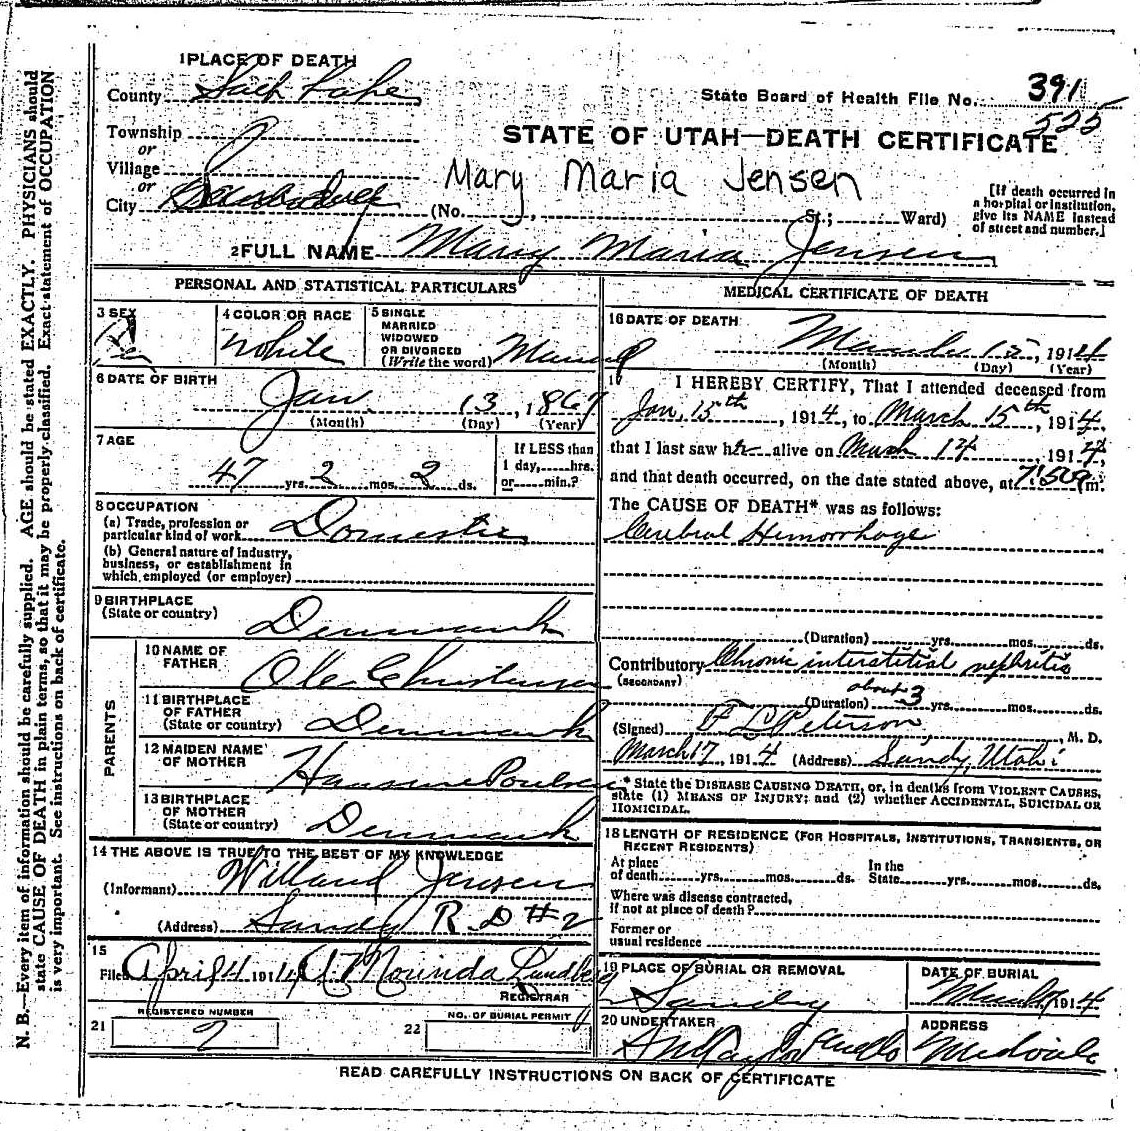 1 PLACE OF DEATH
County Salt Lake
State Board of Health File No. 391
525
Township
or
Village
or
City
STATE OF UTAH—DEATH CERTIFICATE
Mary Maria Jensen
(No. , St.; Ward)
[If death occurred in a hospital or institution, give its NAME instead of street and number.]
2 FULL NAME Mary Maria Jensen
PERSONAL AND STATISTICAL PARTICULARS
3 SEX
Fe
4 COLOR OR RACE
White
5 SINGLE
MARRIED
WIDOWED
OR DIVORCED
(Write the word) Married
6 DATE OF BIRTH
Jan. 13, 1867
(Month) (Day) (Year)
7 AGE
47 yrs. 2 mos. 2 ds.
If LESS than
1 day, hrs.
or min.?
8 OCCUPATION
(a) Trade, profession or
particular kind of work Domestic
(b) General nature of industry,
business, or establishment in
which employed (or employer)
9 BIRTHPLACE
(State or country)
Denmark
PARENTS
10 NAME OF
FATHER
Ole Christensen
11 BIRTHPLACE
OF FATHER
(State or country) Denmark
12 MAIDEN NAME
OF MOTHER
Hansine Poulsen
13 BIRTHPLACE
OF MOTHER
(State or country) Denmark
14 THE ABOVE IS TRUE TO THE BEST OF MY KNOWLEDGE
(Informant) Willard Jensen
(Address) Sandy R.D #2
15
Filed April 4 1914
REGISTRAR
REGISTERED NUMBER
21
NO. OF BURIAL PERMIT
22
MEDICAL CERTIFICATE OF DEATH
16 DATE OF DEATH
March 15, 1914
(Month) (Day) (Year)
17 I HEREBY CERTIFY, That I attended deceased from
Jan, 15th, 1914, to March 15th, 1914,
that I last saw her alive on March 14 1914,
and that death occurred, on the date stated above, at 7:50 a m.
The CAUSE OF DEATH* was as follows:
Cerebral Hemorrhage
(Duration) yrs. mos. ds.
Contributory Chronic interstitial nephritis
(SECONDARY)
(Duration) about 3 yrs. mos. ds.
(Signed) F. L. Peterson, M. D.
March 17, 1914 (Address) Sandy, Utah
* State the DISEASE CAUSING DEATH, or, in deaths from VIOLENT CAUSES,
state (1) MEANS OF INJURY; and (2) whether ACCIDENTAL, SUICIDAL OR
HOMICIDAL.
18 LENGTH OF RESIDENCE (FOR HOSPITALS, INSTITUTIONS, TRANSIENTS, OR
RECENT RESIDENTS)
At place
of death yrs. mos. ds. In the
State yrs. mos. ds.
Where was disease contracted,
if not at place of death?
Former or
usual residence
19 PLACE OF BURIAL OR REMOVAL
Sandy
DATE OF BURIAL
March 1914
20 UNDERTAKER
ADDRESS
Midvale
READ CAREFULLY INSTRUCTIONS ON BACK OF CERTIFICATE
N. B.—Every item of information should be carefully supplied. AGE should be stated EXACTLY. PHYSICIANS should
state CAUSE OF DEATH in plain terms, so that it may be properly classified. Exact statement of OCCUPATION
is very important. See instructions on back of certificate.